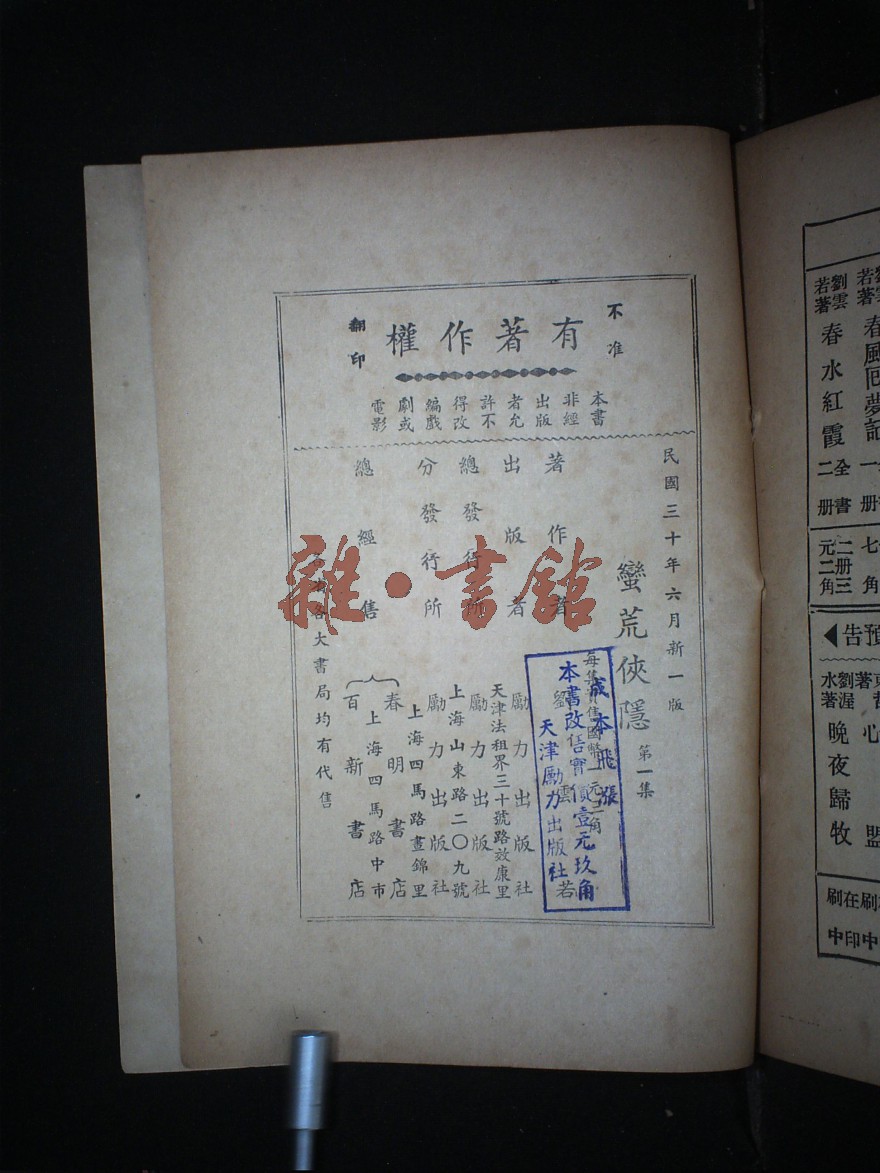 不准
有著作權
翻印
本書
非經
出版
者允
許不
得改
編戲
劇或
電影
民國三十年六月新一版
蠻荒俠隱 第一集
每集實售國幣一元二角
著作者 劉雲若
出版者 勵力出版社
天津法租界三十號路效康里
總發行所 勵力出版社
上海山東路二〇九號
分發行所 勵力出版社
上海四馬路畫錦里
總經售 春明書店
上海四馬路中市
百新書店
各大書局均有代售
成本飛漲
本書改售實價壹元玖角
天津勵力出版社
雜·書館
劉雲若著 春風回夢記
劉雲若著 春水紅霞 全書二册
二册三元二角
預告
劉渥水著 晚夜歸牧
在印刷中